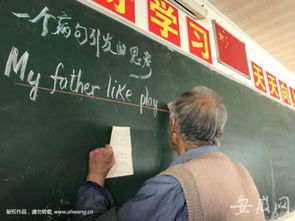 学习
天天向
一个病句引发的思考
My father like play
安徽网
版权作品,请勿转载 www.ahwang.cn